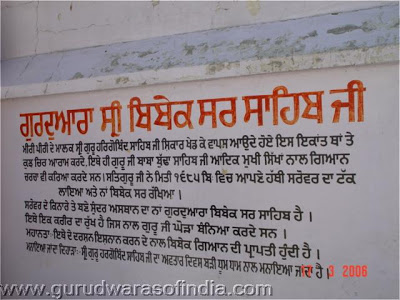 ਗੁਰਦੁਆਰਾ ਸ੍ਰੀ ਬਿਬੇਕ ਸਰ ਸਾਹਿਬ ਜੀ
ਮੀਰੀ ਪੀਰੀ ਦੇ ਮਾਲਕ ਸ੍ਰੀ ਗੁਰੂ ਹਰਿਗੋਬਿੰਦ ਸਾਹਿਬ ਜੀ ਸ਼ਿਕਾਰ ਖੇਡ ਕੇ ਵਾਪਸ ਆਉਂਦੇ ਹੋਏ ਇਸ ਇਕਾਂਤ ਥਾਂ ਤੇ
ਕੁਛ ਚਿਰ ਆਰਾਮ ਕਰਦੇ, ਇਥੇ ਹੀ ਗੁਰੂ ਜੀ ਬਾਬਾ ਬੁੱਢਾ ਸਾਹਿਬ ਜੀ ਆਦਿਕ ਮੁਖੀ ਸਿੱਖਾਂ ਨਾਲ ਗਿਆਨ
ਚਰਚਾ ਵੀ ਕਰਿਆ ਕਰਦੇ ਸਨ। ਸਤਿਗੁਰੂ ਜੀ ਨੇ ਮਿਤੀ ੧੬੮੫ ਬਿ ਵਿਚ ਆਪਣੇ ਹੱਥੀ ਸਰੋਵਰ ਦਾ ਟੱਕ
ਲਾਇਆ ਅਤੇ ਨਾਂ ਬਿਬੇਕ ਸਰ ਰੱਖਿਆ।
ਸਰੋਵਰ ਦੇ ਕਿਨਾਰੇ ਤੇ ਬਣੇ ਸੁੰਦਰ ਅਸਥਾਨ ਦਾ ਨਾਂ ਗੁਰਦੁਆਰਾ ਬਿਬੇਕ ਸਰ ਸਾਹਿਬ ਹੈ।
ਇਥੇ ਇਕ ਕਰੀਰ ਦਾ ਰੁੱਖ ਹੈ ਜਿਸ ਨਾਲ ਗੁਰੂ ਜੀ ਘੋੜਾ ਬੰਨਿਆ ਕਰਦੇ ਸਨ।
ਮਹਾਨਤਾ: ਇਥੇ ਦੇ ਦਰਸਨ ਇਸਨਾਨ ਕਰਨ ਦੇ ਨਾਲ ਬਿਬੇਕ ਗਿਆਨ ਦੀ ਪ੍ਰਾਪਤੀ ਹੁੰਦੀ ਹੈ।
ਮਨਾਇਆ ਜਾਂਦ ਦਿਹਾੜਾ: ਸ੍ਰੀ ਗੁਰੂ ਹਰਿਗੋਬਿੰਦ ਸਾਹਿਬ ਜੀ ਦਾ ਅਵਤਾਰ ਦਿਵਸ ਬੜੀ ਧੂਮ ਧਾਮ ਨਾਲ ਮਨਾਇਆ ਜਾਂਦਾ ਹੈ।
3 2006
www.gurudwarasofindia.com